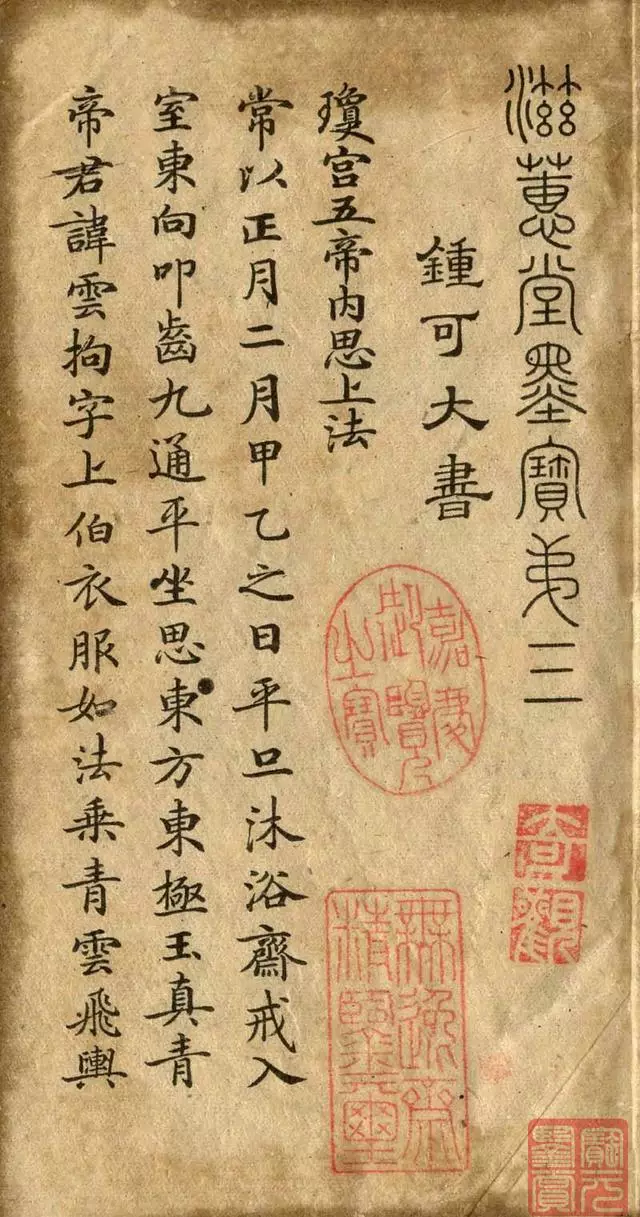 滋蕙堂墨寶弟三
鍾可大書
瓊宮五帝內思上法
常以正月二月甲乙之日平旦沐浴齋戒入
室東向叩齒九通平坐思東方東極玉真青
帝君諱雲拘字上伯衣服如法乘青雲飛輿
嘉慶御覽之寶
奇觀
無逸齋精鑒璽